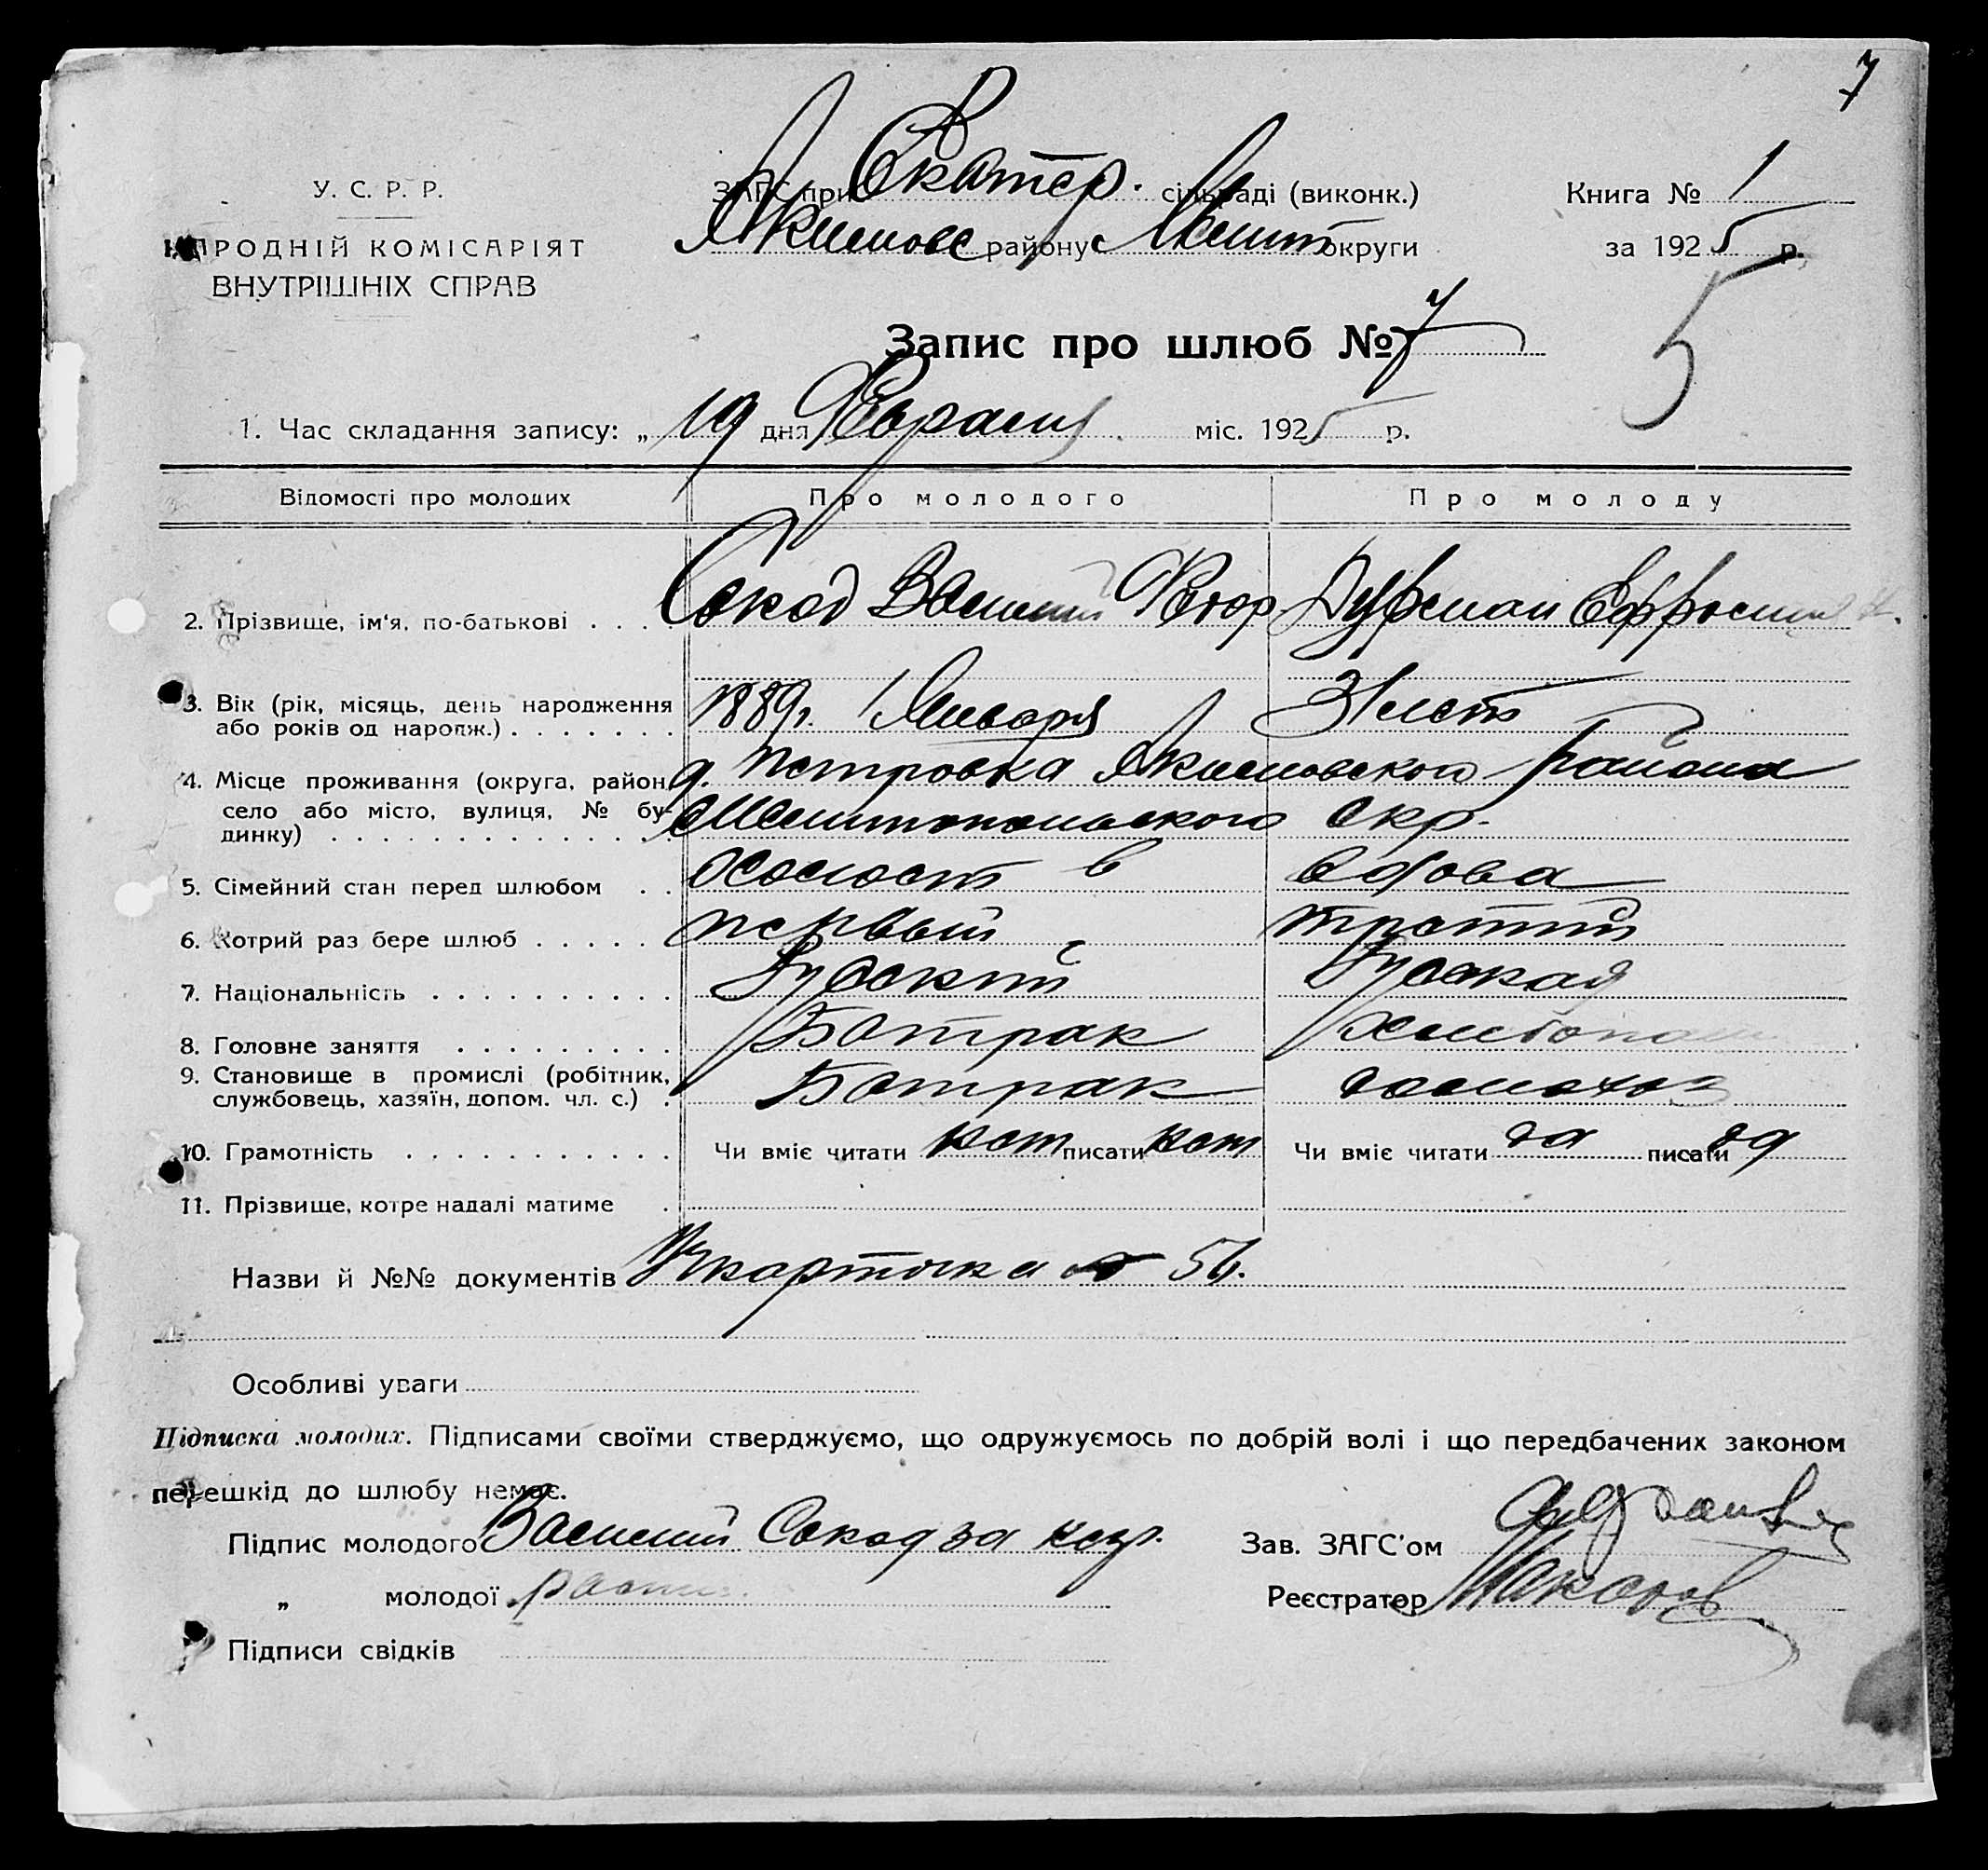 7
У. С. Р. Р.
НАРОДНІЙ КОМІСАРІЯТ
ВНУТРІШНІХ СПРАВ
ЗАГС при Екатер. сільраді (виконк.)
Якимовс району Мелит округи
Книга № 1
за 1925 р.
5
Запис про шлюб № 7
1. Час складання запису: „ 19 дня Февраля міс. 1925 р.
Відомості про молодих Про молодого Про молоду
2. Прізвище, ім'я, по-батькові . . . . Сокад Василий Федор Ефросин
3. Вік (рік, місяць, день народження
або років од нарoдж.) . . . . . . . 1889г. 1 Января 31 лет
4. Місце проживання (округа, район,
село або місто, вулиця, № бу-
динку) . . . . . . . . . . . . . .
д. Петровка Якимовского района
Мелитопольского окр.
5. Сімейний стан перед шлюбом . . Холост вдова
6. Котрий раз бере шлюб . . . . . первый третий
7. Національність . . . . . . . . . . Руский Руская
8. Головне заняття . . . . . . . . . Батрак
9. Становище в промислі (робітник,
службовець, хазяїн, допом. чл. с.) . Батрак домохоз
10. Грамотність . . . . . . . . . . . Чи вміє читати нет писати нет Чи вміє читати да писати да
11. Прізвище, котре надалі матиме .
Назви й №№ документів Учкарточка № 51.
Особливі уваги
Підписка молодих. Підписами своїми стверджуємо, що одружуємось по добрій волі і що передбачених законом
перешкід до шлюбу немає.
Підпис молодого Василий Сокад за негр.
„ молодої
Підписи свідків
Зав. ЗАГС'ом
Реєстратор Макаров